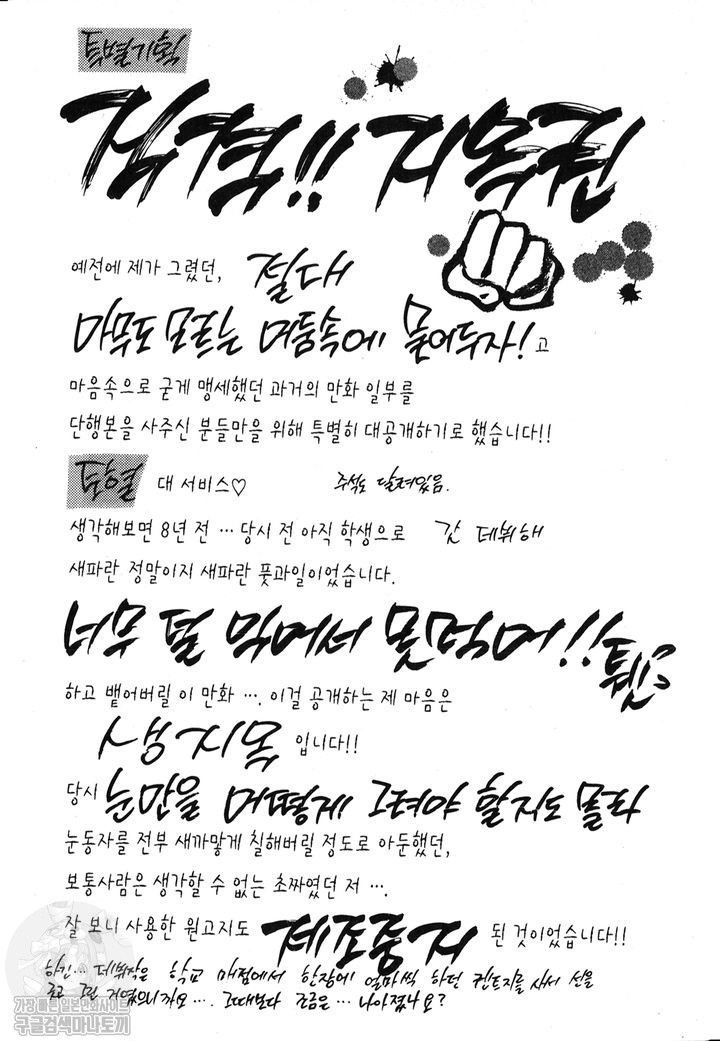 특별기획
직격!! 지옥권
예전에 제가 그렸던, 절대
아무도 모르는 어둠속에 묻어두자! 고
마음속으로 굳게 맹세했던 과거의 만화 일부를
단행본을 사주신 분들만을 위해 특별히 대공개하기로 했습니다!!
대 서비스♡ 주석도 달려있음.
생각해보면 8년 전 … 당시 전 아직 학생으로 갓 데뷔해
새파란 정말이지 새파란 풋과일이었습니다.
너무 떫 맛에서 못먹어!! 퉤
하고 뱉어버릴 이 만화 …. 이걸 공개하는 제 마음은
생지옥 입니다!!
당시 눈만을 어떻게 그려야 할지도 몰라
눈동자를 전부 새까맣게 칠해버릴 정도로 아둔했던,
보통사람은 생각할 수 없는 초짜였던 저 ….
잘 보니 사용한 원고지도 된 것이었습니다!!
하긴… 데뷔작을 학교 매점에서 한장에 얼마씩 하던 켄트지를 사서 선을
긋고 그린 거였으니까요 …. 그때보다 조금은 … 나아졌나요?
가장 빠른 일본만화사이트
구글검색마나토끼